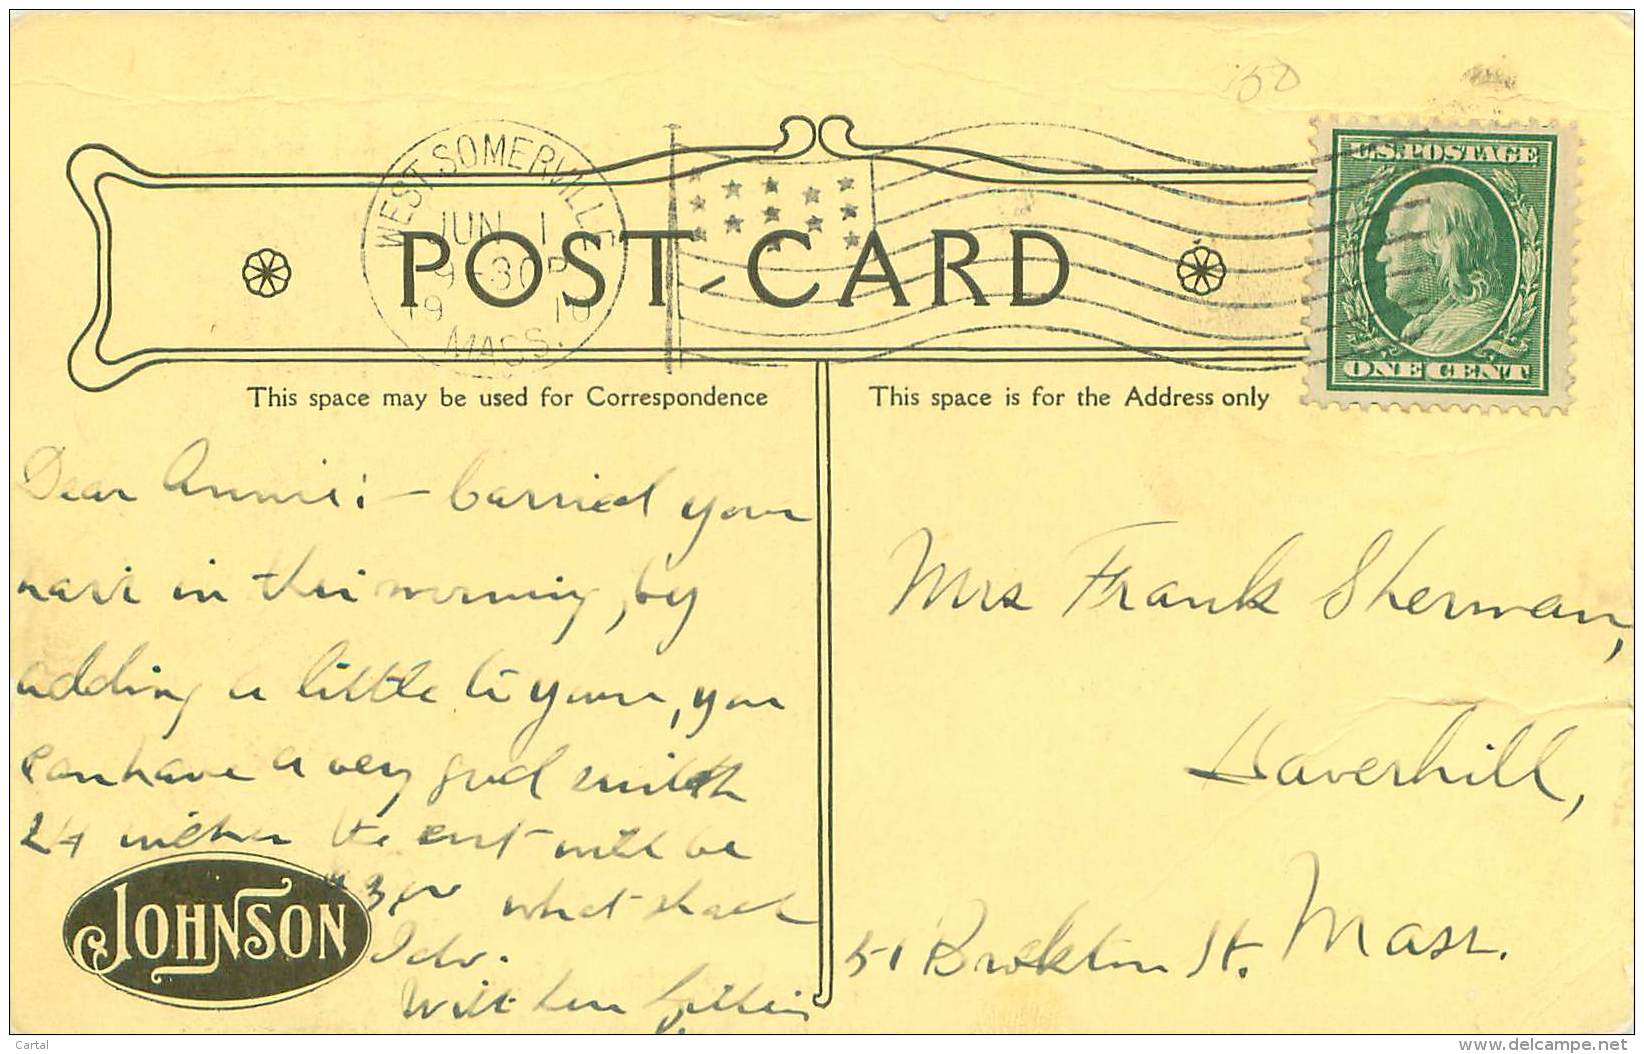 50
WEST SOMERVILLE
JUN 1
9-30P
19 10
MASS.
POST-CARD
U.S.POSTAGE
ONE CENT
This space may be used for Correspondence
This space is for the Address only
Dear Annie: – Carried your
hair in this morning, by
adding a little to yours, you
can have a very good switch
24 inches the cost will be
$3.00 what shall
I do.
Will
Mrs Frank Sherman,
Haverhill,
Mass.
51 Brockton St.
JOHNSON
Cartal
www.delcampe.net